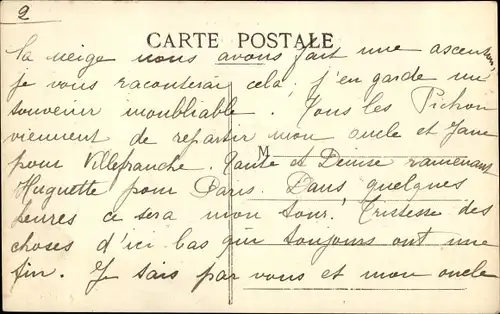 2
CARTE POSTALE
la neige nous avons fait une ascention,
je vous raconterai cela, j'en garde un
souvenir inoubliable. Tous les Pichon
viennent de repartir mon oncle et Jane
M
pour Villefranche. Tante et Denise ramenant
Huguette pour Paris. Dans quelques
heures ce sera mon tour. Tristesse des
choses d'ici bas qui toujours ont une
fin. Je sais par vous et mon oncle